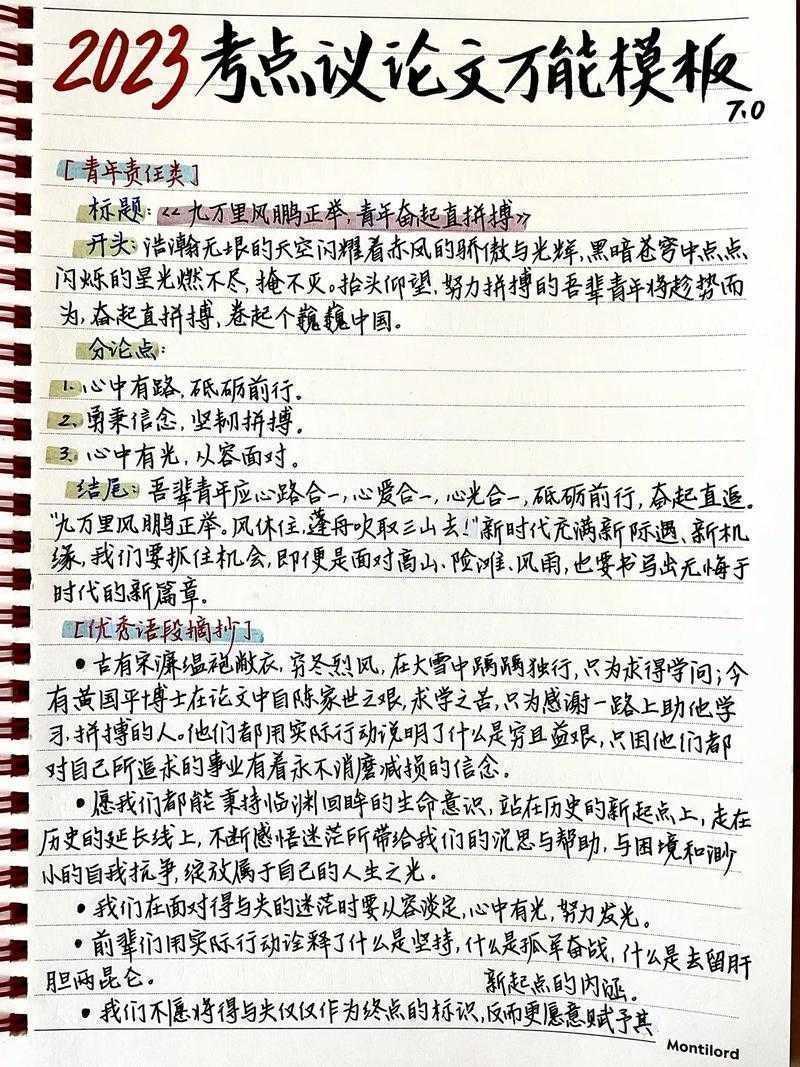 2023考点议论文万能模板
7.0
[青年责任类]
标题:《九万里风鹏正举,青年奋起直拼搏》
开头:浩瀚无垠的天空闪耀着赤风的骄傲与光辉,黑暗苍穹中点点
闪烁的星光燃不尽,掩不灭。抬头仰望,努力拼搏的吾辈青年将趁势而
为,奋起直拼搏,卷起个巍巍中国。
分论点:
1.心中有路,砥砺前行。
2.勇秉信念,坚韧拼搏。
3.心中有光,从容面对。
结尾:吾辈青年应心路合一,心爱合一,心光合一,砥砺前行,奋起直追。
"九万里风鹏正举。风休住,蓬舟吹取三山去!"新时代充满新际遇、新机
缘,我们要抓住机会,即便是面对高山、险滩、风雨,也要书写出无悔于
时代的新篇章。
[优秀语段摘抄]
•古有宋濂缊袍敝衣,穷冬烈风,在大雪中踽踽独行,只为求得学问;今
有黄国平博士在论文中自陈家世之艰,求学之苦,只为感谢一路上助他学
习,拼搏的人。他们都用实际行动说明了什么是穷且益艰,只因他们都
对自己所追求的事业有着永不消磨减损的信念。
•愿我们都能秉持临渊回眸的生命意识,站在历史的新起点上,走在
历史的延长线上,不断感悟迷茫所带给我们的沉思与帮助,与困境和渺
小的自我抗争,绽放属于自己的人生之光。
•我们在面对得与失的迷茫时要从容淡定,心中有光,努力发光。
•前辈们用实际行动诠释了什么是坚持,什么是孤军奋战,什么是去留肝
胆两昆仑。
•我们不愿将得与失仅仅作为终点的标识,反而更愿意赋予其
新起点的内涵。
Montilord